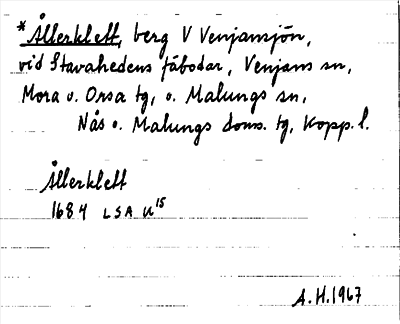 * Ållerklett, berg V Venjansjön,
vid Stavahedens fäbodar, Venjans sn,
Mora o. Orsa tg, o. Malungs sn,
Nås o. Malungs doms. tg, Kopp. l.
Ållerklett
1684 LSA U15
A.H. 1967